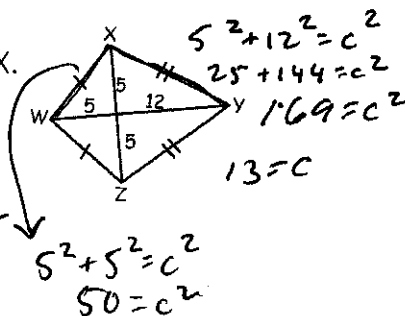 X.
X
5
5
12
W
Y
5
Z
5² + 12² = c²
25 + 144 = c²
169 = c²
13 = c
5² + 5² = c²
50 = c²